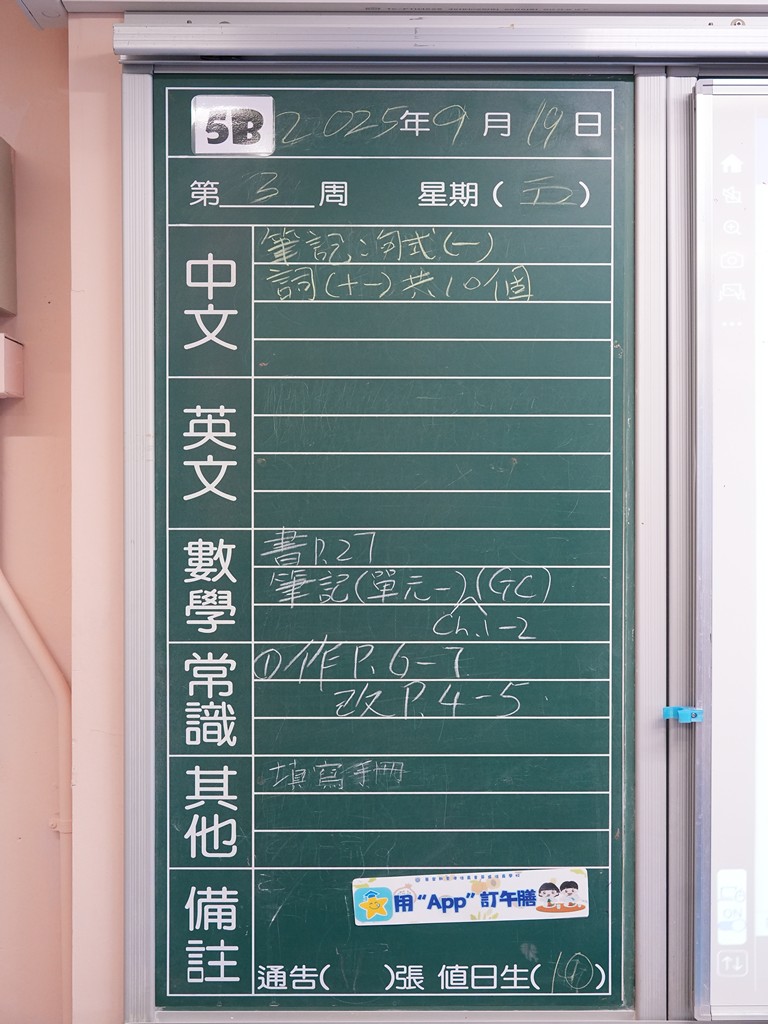 5B 2025年9月19日
第3周 星期(五)
中文
筆記:句式(一)
詞(十一)共10個
英文
數學
書P.27
筆記(單元一)(GC)
Ch.1-2
常識
①作P.6-7
改P.4-5
其他
填寫手冊
備註
用“App”訂午膳
通告( )張 值日生(10)